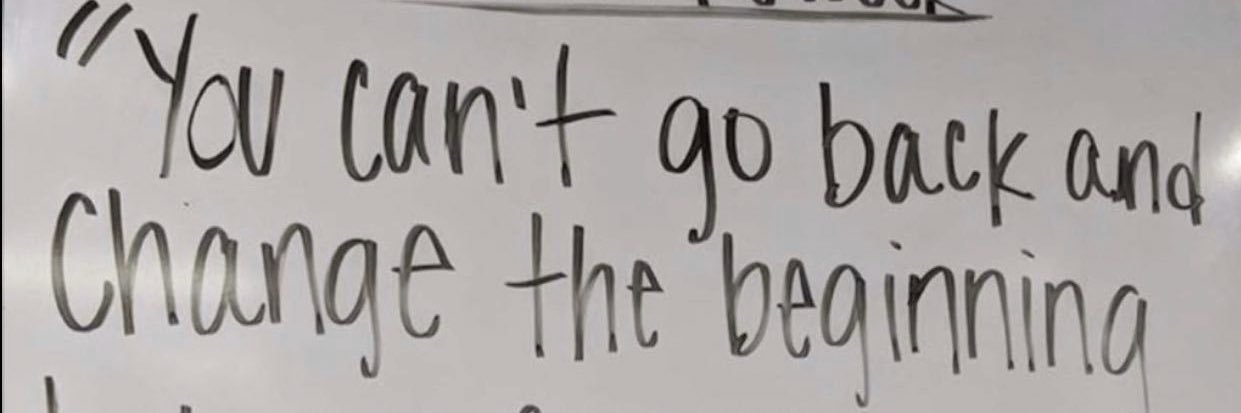 "You can't go back and
Change the beginning